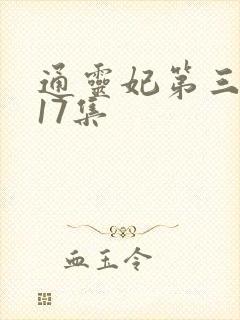 通靈妃第三
17集
血玉令